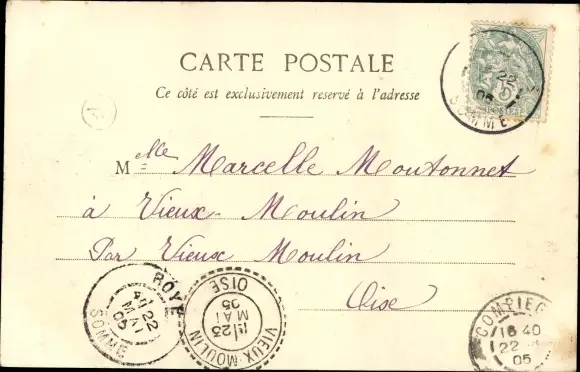 CARTE POSTALE
Ce côté est exclusivement reservé à l'adresse
Melle Marcelle Moutonnet
à Vieux-Moulin
Par Vieux Moulin
Oise
22
05
SOMME
ROYE
22
MAI
05
SOMME
VIEUX-MOULIN
23
MAI
05
OISE
COMPIEG
16 40
22
05